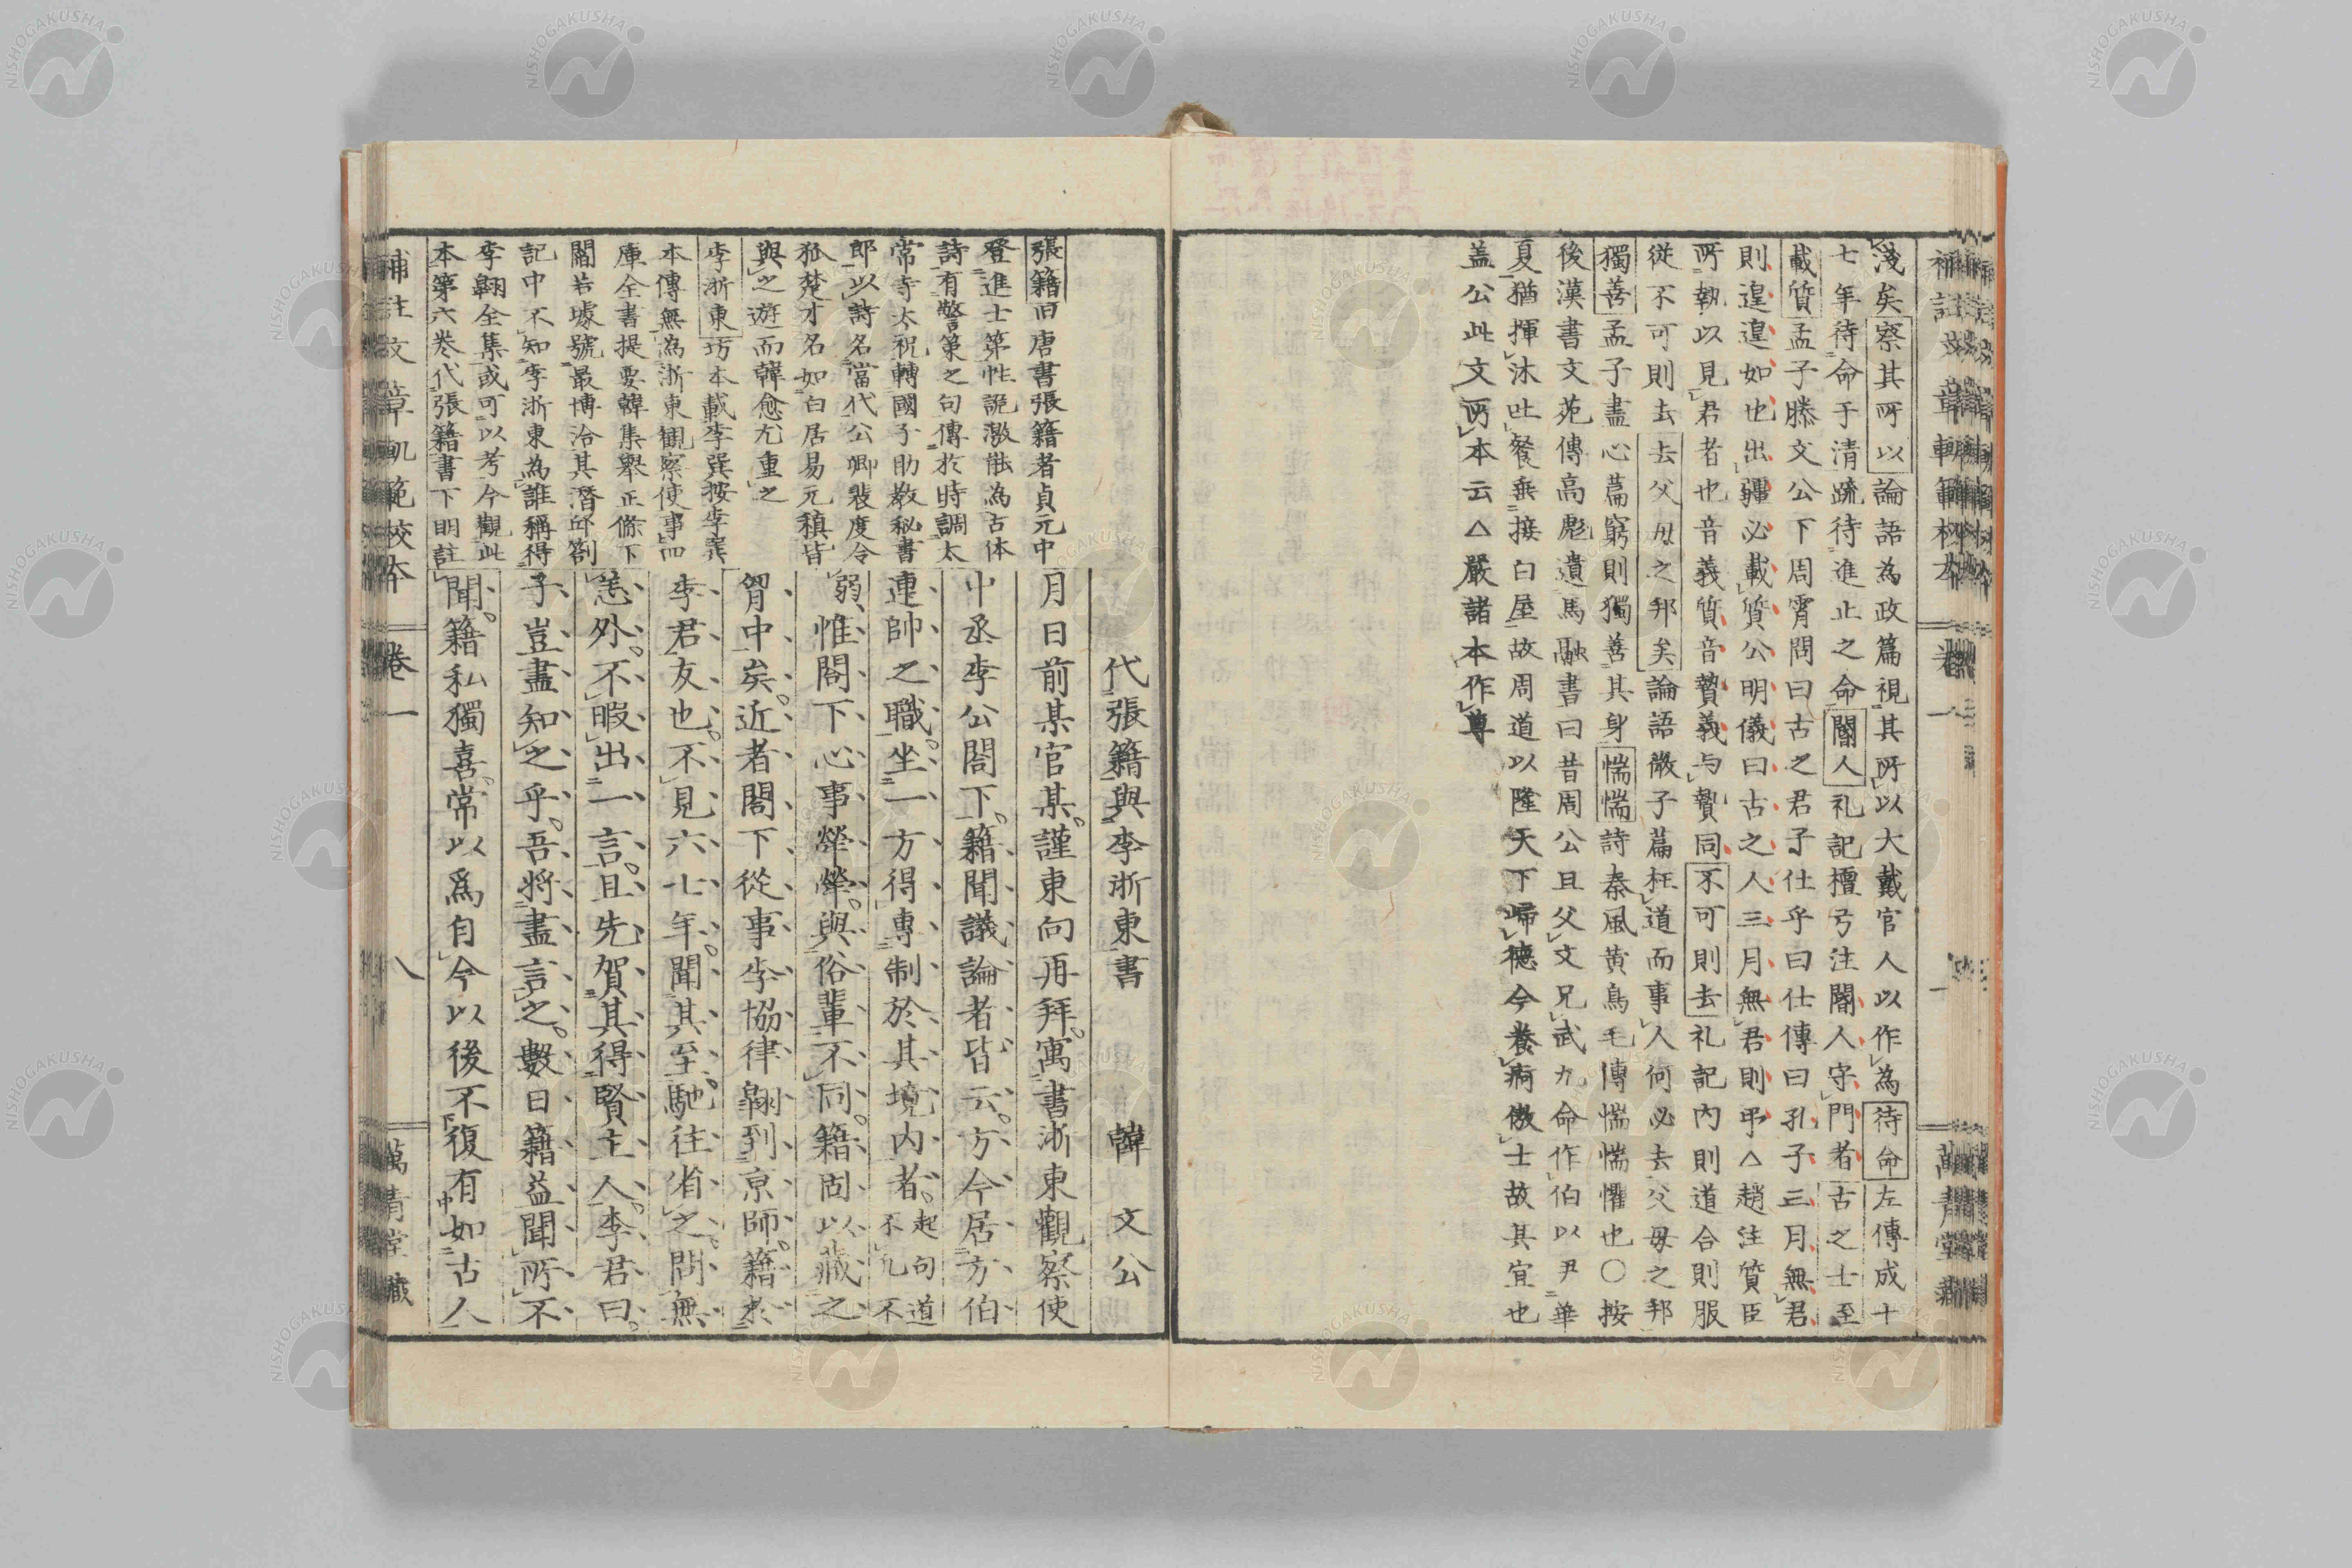 淺矣察其所以論語為政篇視其所以大戴官人以作為待命左傳成十
七年待命于清䟽待進止之命閽人礼記檀弓注閽人守門者古之士至
載質孟子滕文公下周霄問曰古之君子仕乎曰仕傳曰孔子三月無君
則遑遑如也出疆必載質公明儀曰古之人三月無君則弔△趙注質臣
所執以見君者也音義質音贄義与贄同不可則去礼記内則道合則服
從不可則去去父母之邦矣論語微子篇枉道而事人何必去父母之邦
獨善孟子盡心篇窮則獨善其身惴惴詩秦風黄鳥毛傳惴惴懼也〇按
後漢書文苑傳高彪遺馬融書曰昔周公旦父文兄武九命作伯以尹華
夏猶揮沐吐餐垂接白屋故周道以隆天下歸德今養痾傲士故其宜也
盖公此文所本云△嚴諸本作尊
代張籍與李浙東書 韓文公
張籍旧唐書張籍者貞元中
登進士第性詭激能為古体
詩有警策之句傳於時調太
常寺太祝轉國子助教秘書
郎以詩名當代公卿裴度令
狐楚才名如白居易元稹皆
與之遊而韓愈尤重之
李浙東坊本載李巽按李巽
本傳無為浙東觀察使事四
庫全書提要韓集舉正條下
閻若璩號最博洽其潛邱劄
記中不知李浙東為誰稱得
李翺全集或可以考今觀此
本第六卷代張籍書下明註
月日前某官某謹東向再拜寓書浙東觀察使
中丞李公閤下籍聞議論者皆云方今居方伯
連帥之職坐一方得專制於其境内者起句道不凡不
弱惟閤下心事犖犖與俗輩不同籍固以藏之
胷中矣近者閤下從事李協律翺到京師籍於
李君友也不見六七年聞其至馳往省之問無
恙外不暇出一言且先賀其得賢主人李君曰
子豈盡知之乎吾將盡言之數日籍益聞所不
聞籍私獨喜常以爲自今以後不復有如古人
補註文章軌範校本 卷一 八 萬青堂藏